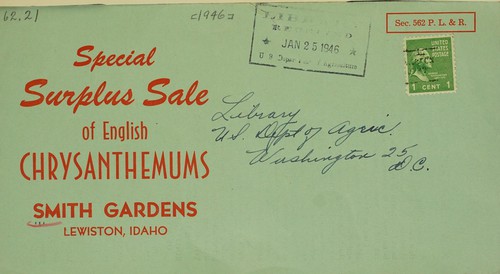 62.21
c1946
LIBRARY
★ JAN 25 1946 ★
U S Department of Agriculture
Sec. 562 P. L. & R.
UNITED STATES
POSTAGE
1 CENT 1
Special
Surplus Sale
of English
CHRYSANTHEMUMS
SMITH GARDENS
LEWISTON, IDAHO
Library
U.S. Dept of Agric.
Washington 25
D.C.